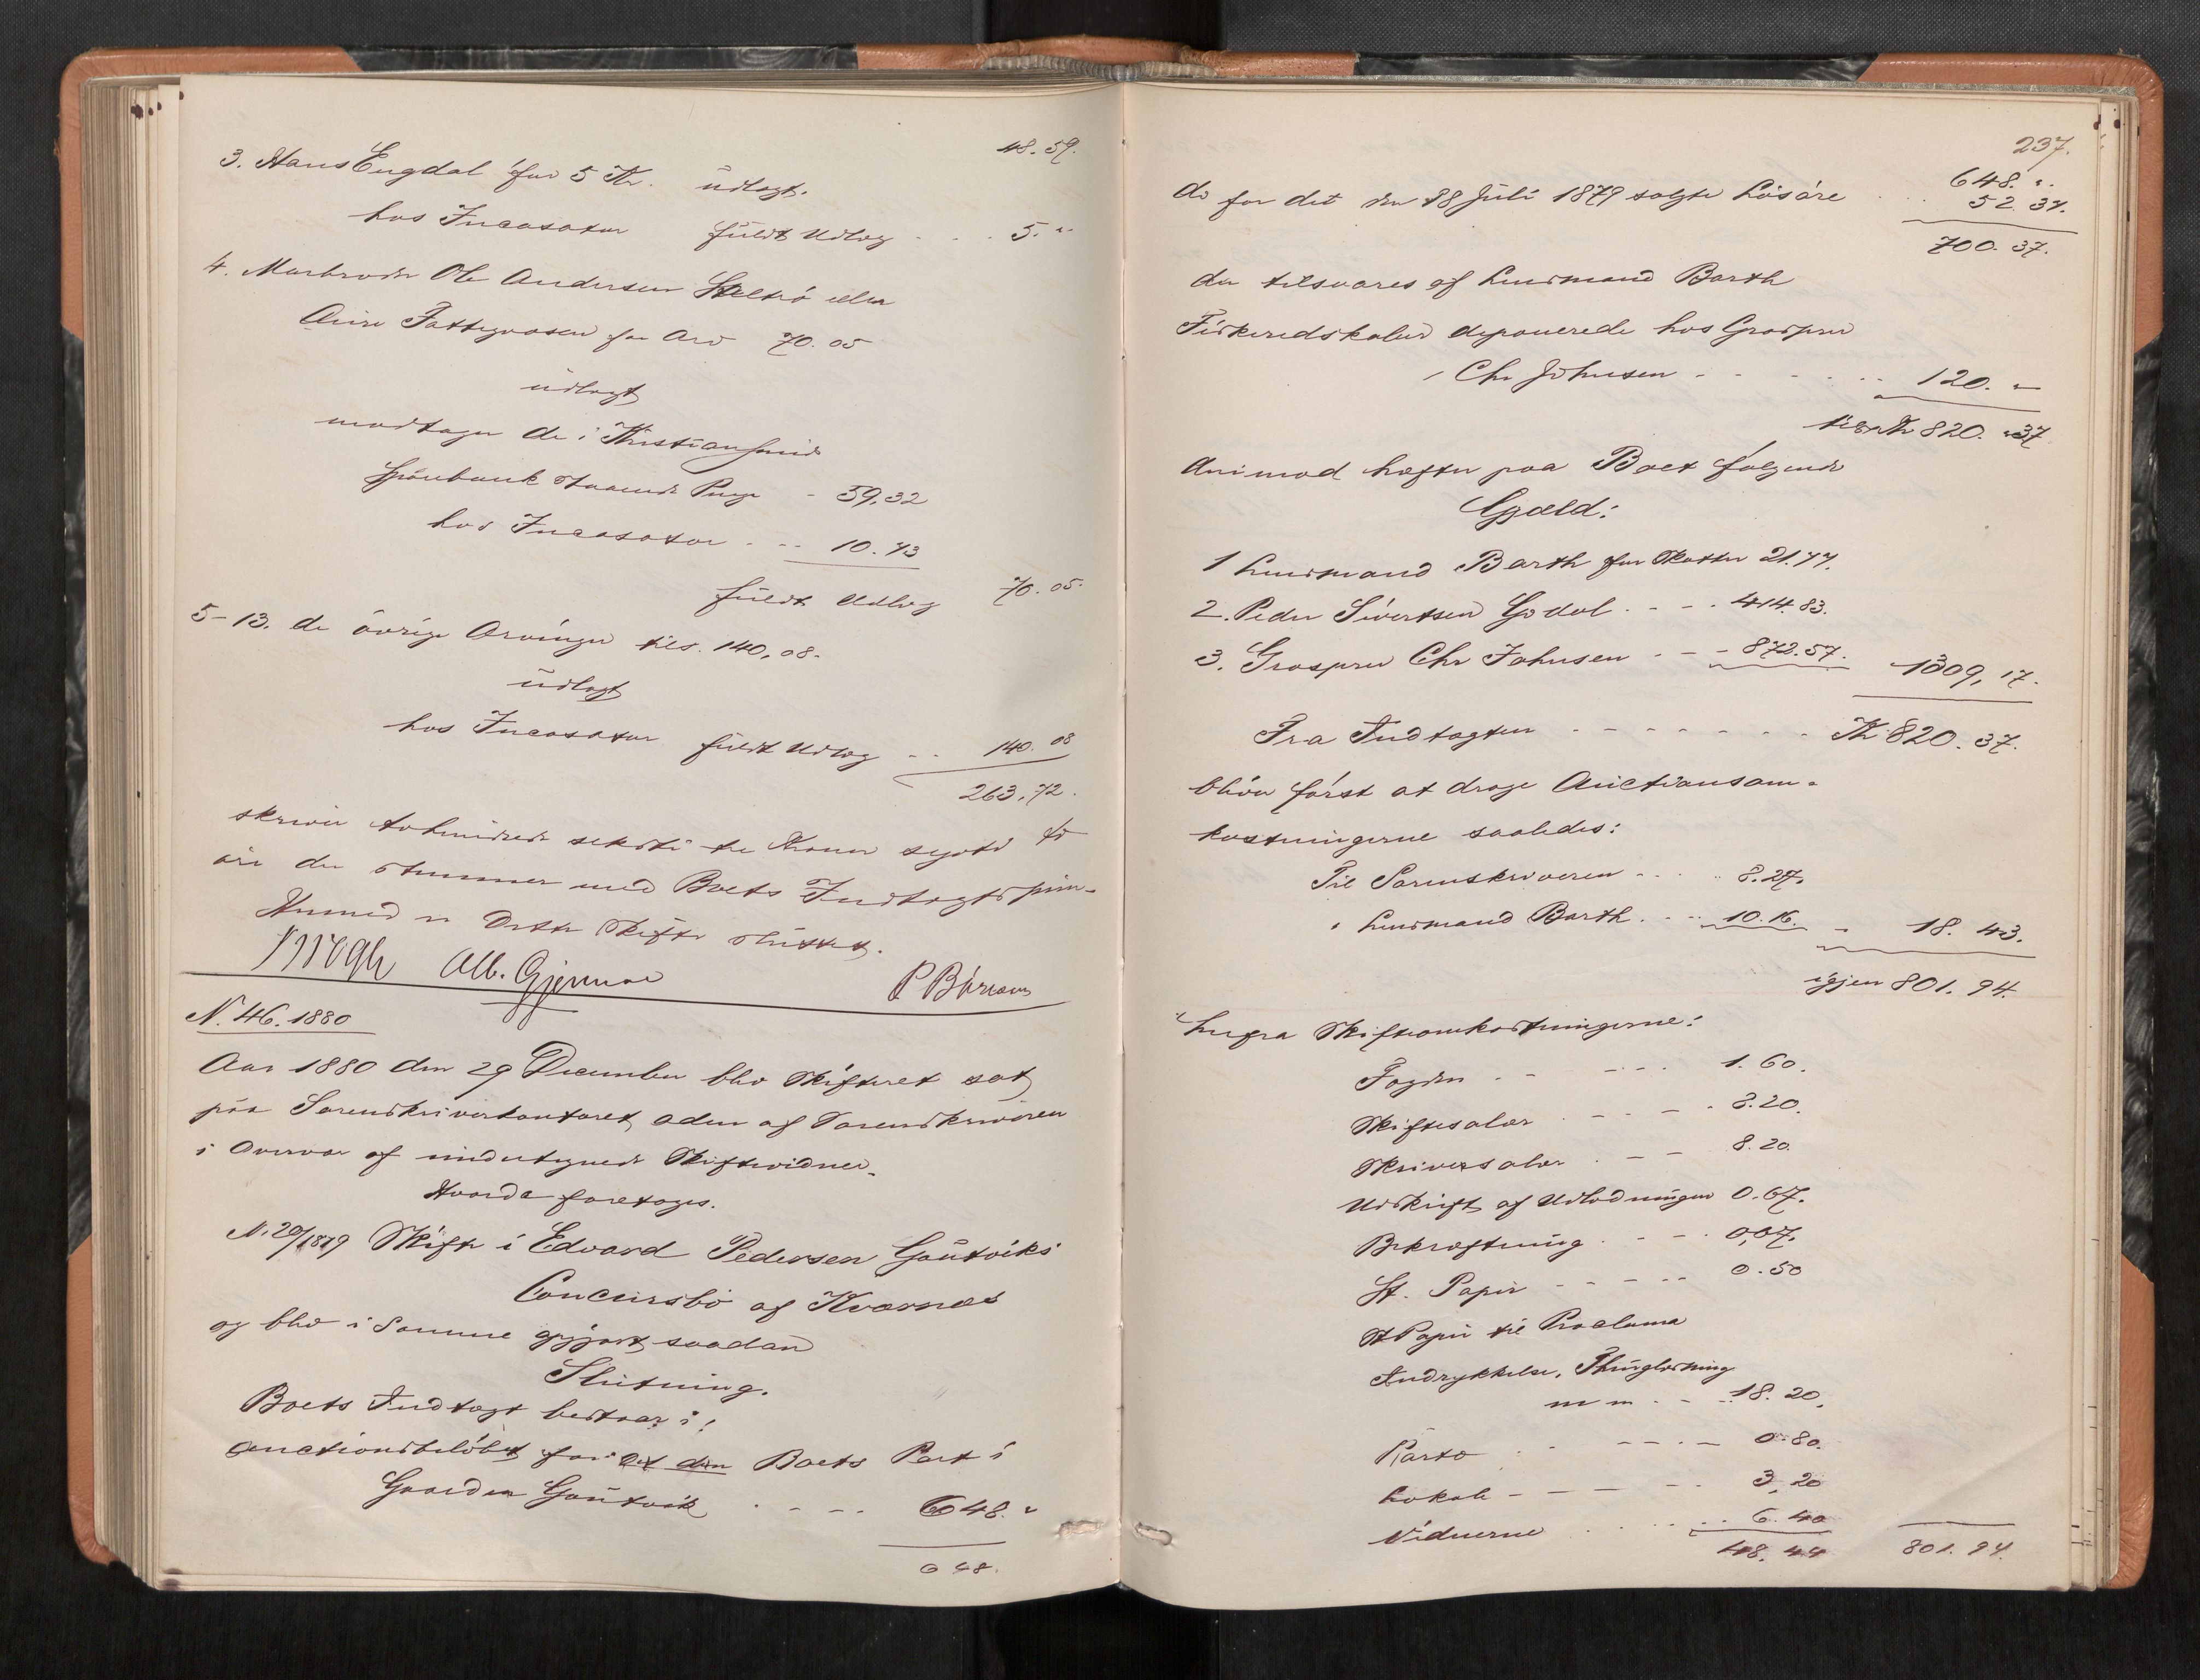 48.59.
3. Hans Engdal for 5 Kr. udlagt.
hos Incasator fuldt Udlæg - - - 5. "
4. Morbroder Ole Andersen eller
Aure Fattigvæsen for Arv 70.05
udlagt
modtager de i Kristiansund
Sparebank staaende Penge - 59,32
hos Incasator - - - 10.73
fuldt Udlæg 70.05
5-13. de övrige Arvinger tils. 140,08.
udlagt
hos Incasator fuldt Udlæg - - 140.08
263,72.
skriver tohundrede seksti tre Kroner sytti to
öre der stemmer med Boets Indtægtssum-
Hermed er Dette Skifte sluttet.
Krogh Alb. Gjernæs
N. 46. 1880
Aar 1880 den 29 December blev Skifteret sat
paa Sorenskriverkontoret og den af Sorenskriveren
i Overvær af undertegnede Skiftevidner.
Hvorda foretoges.
N. 20/1879 Skifte i Edvard Pedersen Gautviks
Concursbo af Kvernæs
og blev i Samme gjort saadan
Slutning.
Boets Indtægt bestaar i:
Auctionsbelöbet for det den Boets Part i
Gaarden Gautvik - - - - 648. "
648.
237.
648. "
do for det den 28 Juli 1879 solgte Lösöre . . . 52.37.
700.37.
der tilsvares af Lensmand Barth
Fiskeredskaber deponerede hos Grosserer
Chr Johnsen - - - - - - 120. "
tils. Kr 820.37
Herimod hefter paa Boet fölgende
Gjæld:
1 Lensmand Barth for Skatter 21.77.
2. Peder Sivertsen Godal - - - 414.83.
3. Grosserer Chr Johnsen - - - 872.57. 1309,17.
Fra Indtægten - - - - - - - Kr 820.37.
bliver först at drage Auctionsom-
kostningerne saaledes:
Til Sorenskriveren - - - - 8.27.
" Lensmand Barth - - - 10.16. - 18.43.
igjen 801.94.
herfra Skifteomkostningerne:
Fogden - - - - - 1.60.
Skiftesalær - - - - - 8.20.
Skriversalær - - - 8.20.
Udskrift af Udlodningen 0.67.
Bekræftning - - - 0,67.
St. Papir - - - - - 0.50
St Papir til Proclama
Indrykkelse, Thinglæsning
m m - - - 18.20.
Porto - - - - - 0.80.
Lokale - - - - - 3,20
Vidnerne - - - - - 6.40
48.44 801.94.